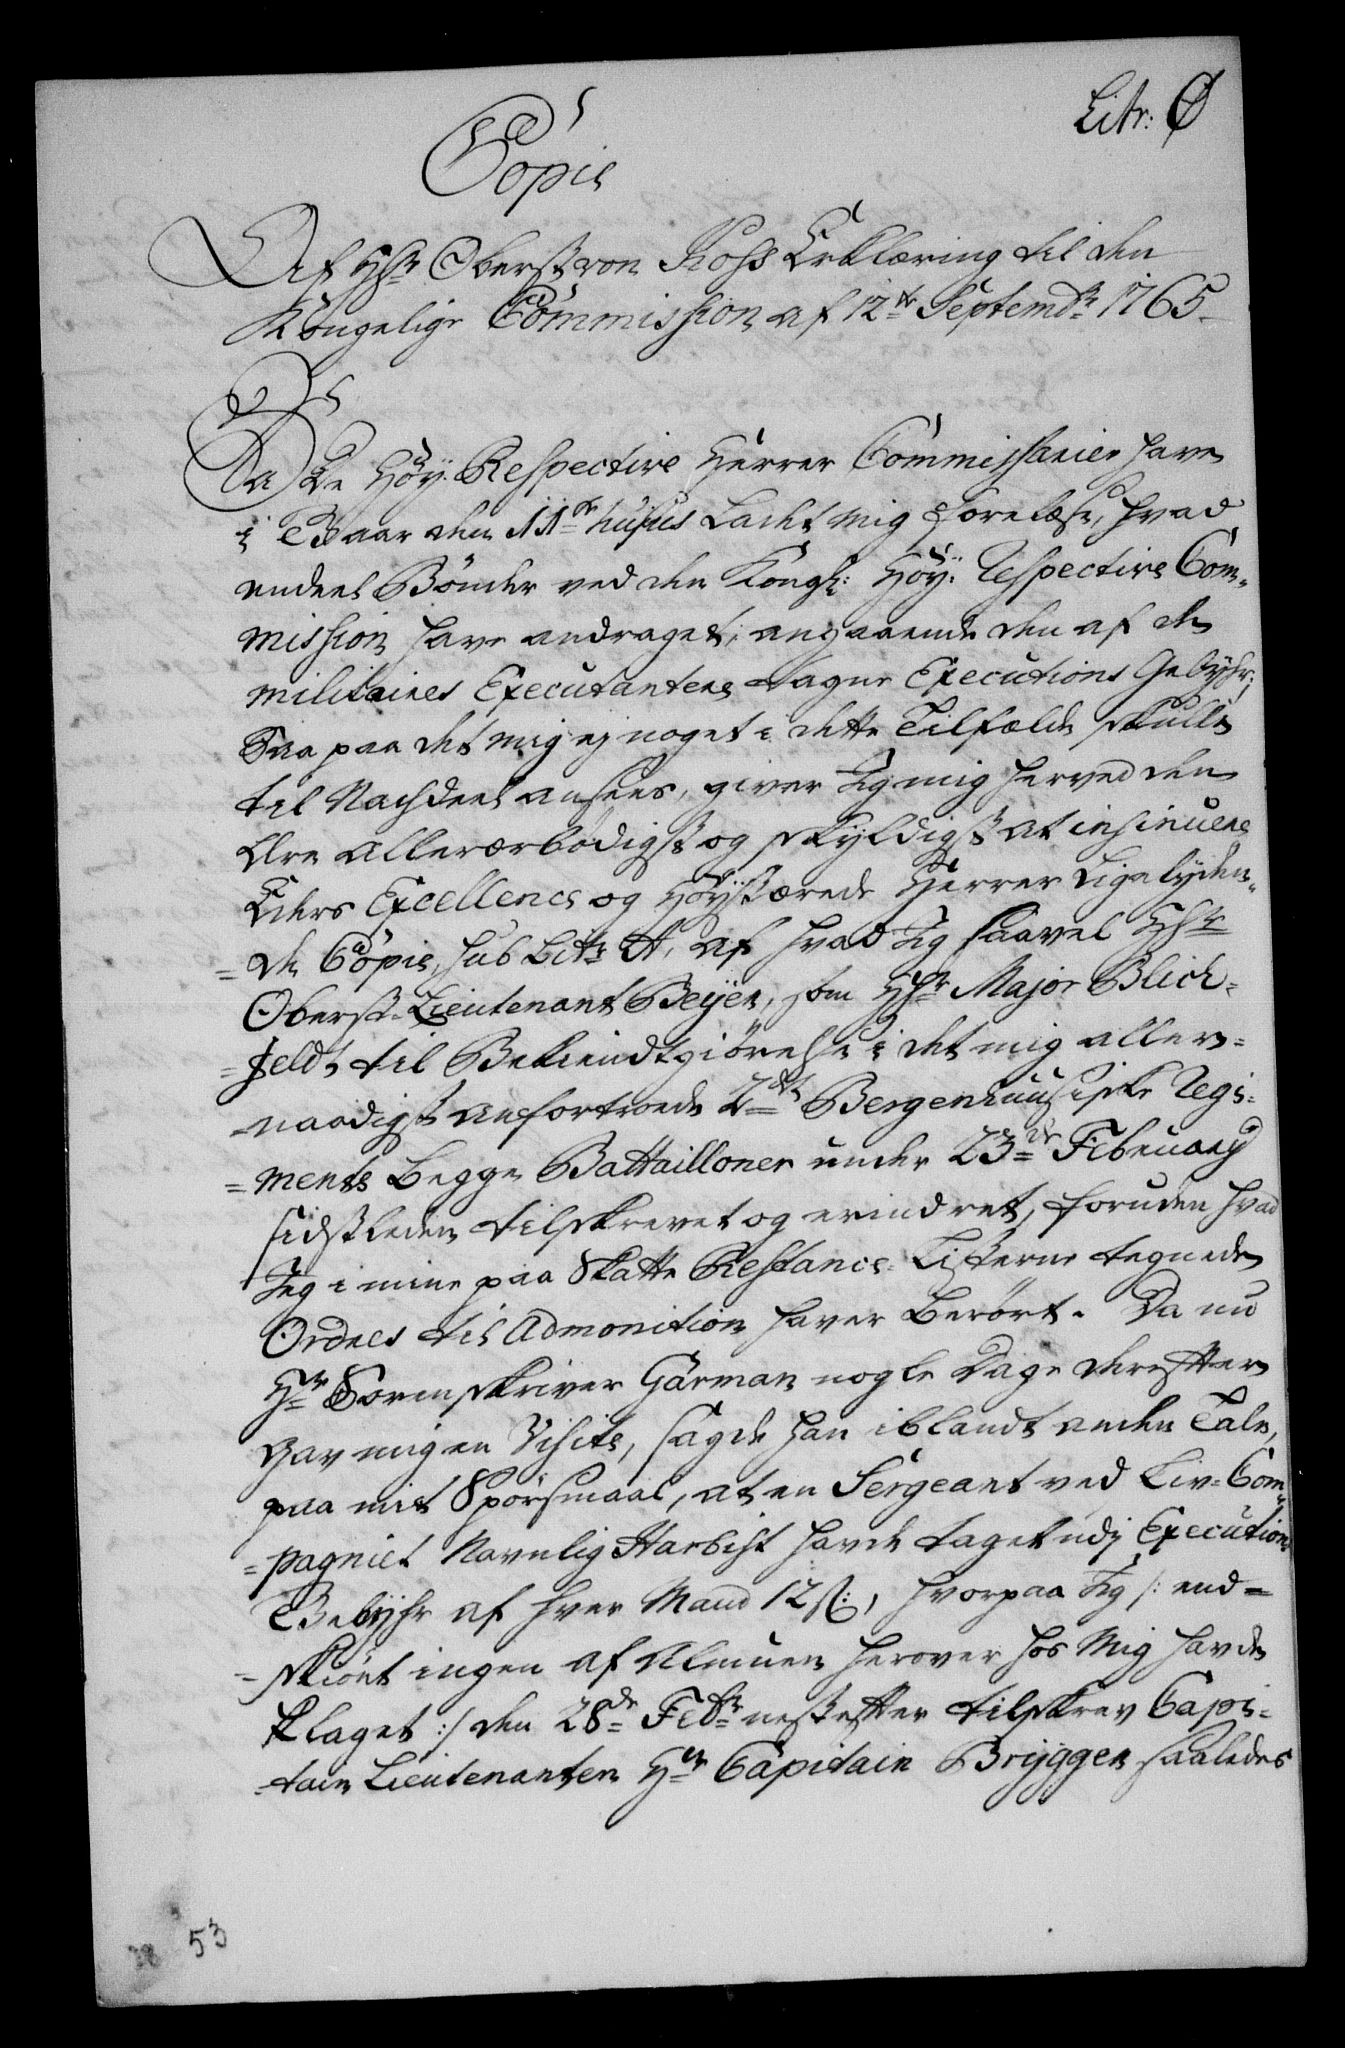 Litr: Ø
Copie
Af Hr: Oberst von Kohs Erklæring til den
Kongelige Commission af 12te Septembr: 1765
Da De Høy-Respective Herrer Commissarier have
i Baar den 11te hujus Ladt mig forelæse, hvad
endeel Bønder ved den Kongl: Høy-Respective Com-
mission have andraget, angaaende den af de
militaires Executantere tagne Executions Gebyhr;
Saa paa det mig ej noget i dette Tilfælde skulle
til Nachdeel ansees, giver Jeg mig herved den
Ære allerærbødigst og skyldigst at insinuere
Eders Excellence og Høystærede Herrer Ligelyden-
-de Copie, sub Litr: A, af hvad Jeg saavel Hr:
Oberst-Lieutenant Beijer, som Hr: Major Blich-
-feldt til Bekiendtgiørelse i det mig aller-
naadigst anfortroede 2det Bergenhuusiske Regi-
-ments begge Battailloner under 23de Februarij
sidstleden tilskrevet og erindret, foruden hvad
Jeg i mine paa Skatte Restance-Listerne tegnede
Ordres til Admonition haver berørt. Da nu
Hr: Sorenskriver Garman nogle Dage derefter
gav mig en Visite, sagde han iblandt anden Tale,
paa mit Spørsmaal, at en Sergeant ved Liv-Com-
-pagniet Navnlig Harbist havde taget udj Execution
Gebyhr af hver Mand 12 s:, hvorpaa Jeg /: end-
-skiønt ingen af Almuen herover hos Mig havde
klaget :/ den 28de Febr: nestefter tilskrev Capi-
-tain Lieutenanten Hr: Capitain Brygger saaledes
53